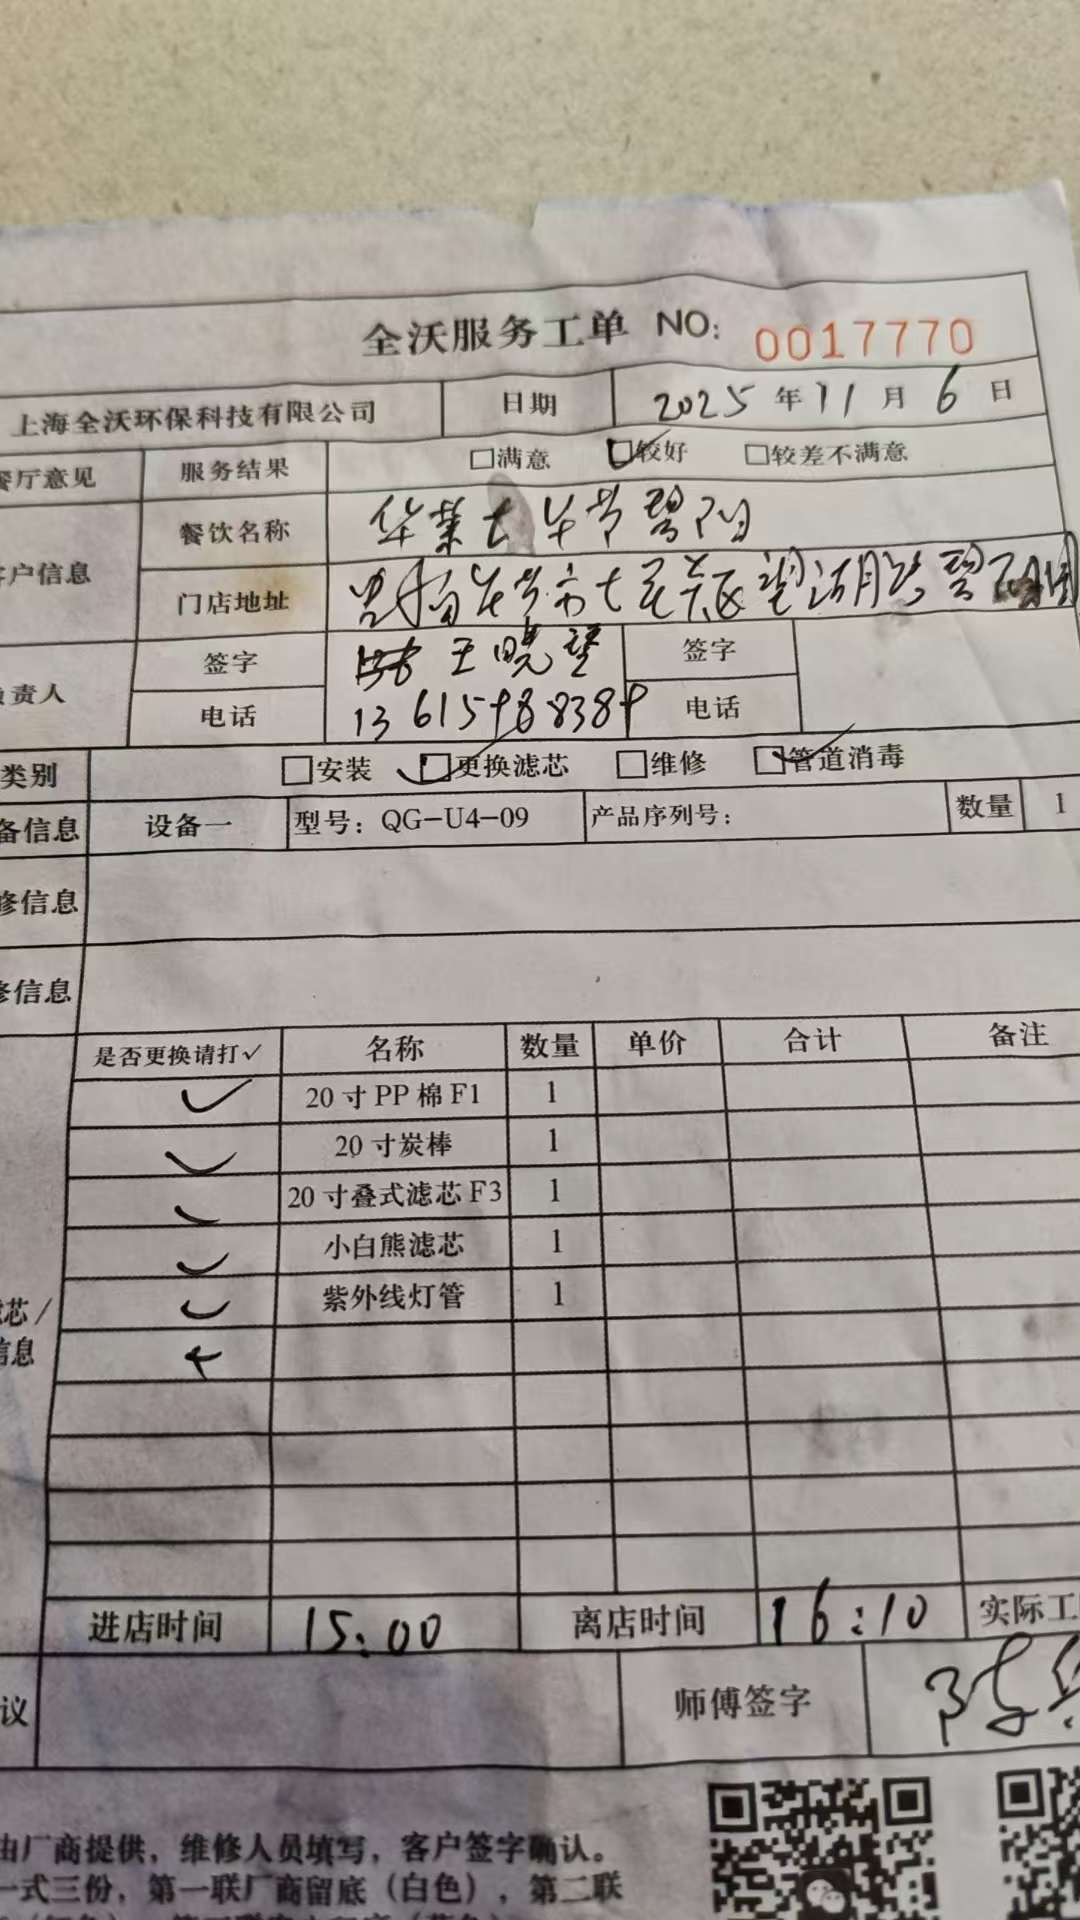 全沃服务工单 NO: 0017770
上海全沃环保科技有限公司 日期 2025年11月6日
餐厅意见 服务结果 □满意 ☑较好 □较差不满意
客户信息 餐饮名称 华莱士毕节碧阳
门店地址 贵州省毕节市七星关区望湖路碧阳
负责人 签字 王晓望 签字
电话 13615988389 电话
类别 □安装 ☑更换滤芯 □维修 ☑管道消毒
备信息 设备一 型号：QG-U4-09 产品序列号： 数量 1
修信息
修信息
是否更换请打✓ 名称 数量 单价 合计 备注
✓ 20寸PP棉F1 1
✓ 20寸炭棒 1
✓ 20寸叠式滤芯F3 1
✓ 小白熊滤芯 1
✓ 紫外线灯管 1
芯/
信息
进店时间 15:00 离店时间 16:10 实际工
议 师傅签字 陈
由厂商提供，维修人员填写，客户签字确认。
一式三份，第一联厂商留底（白色），第二联